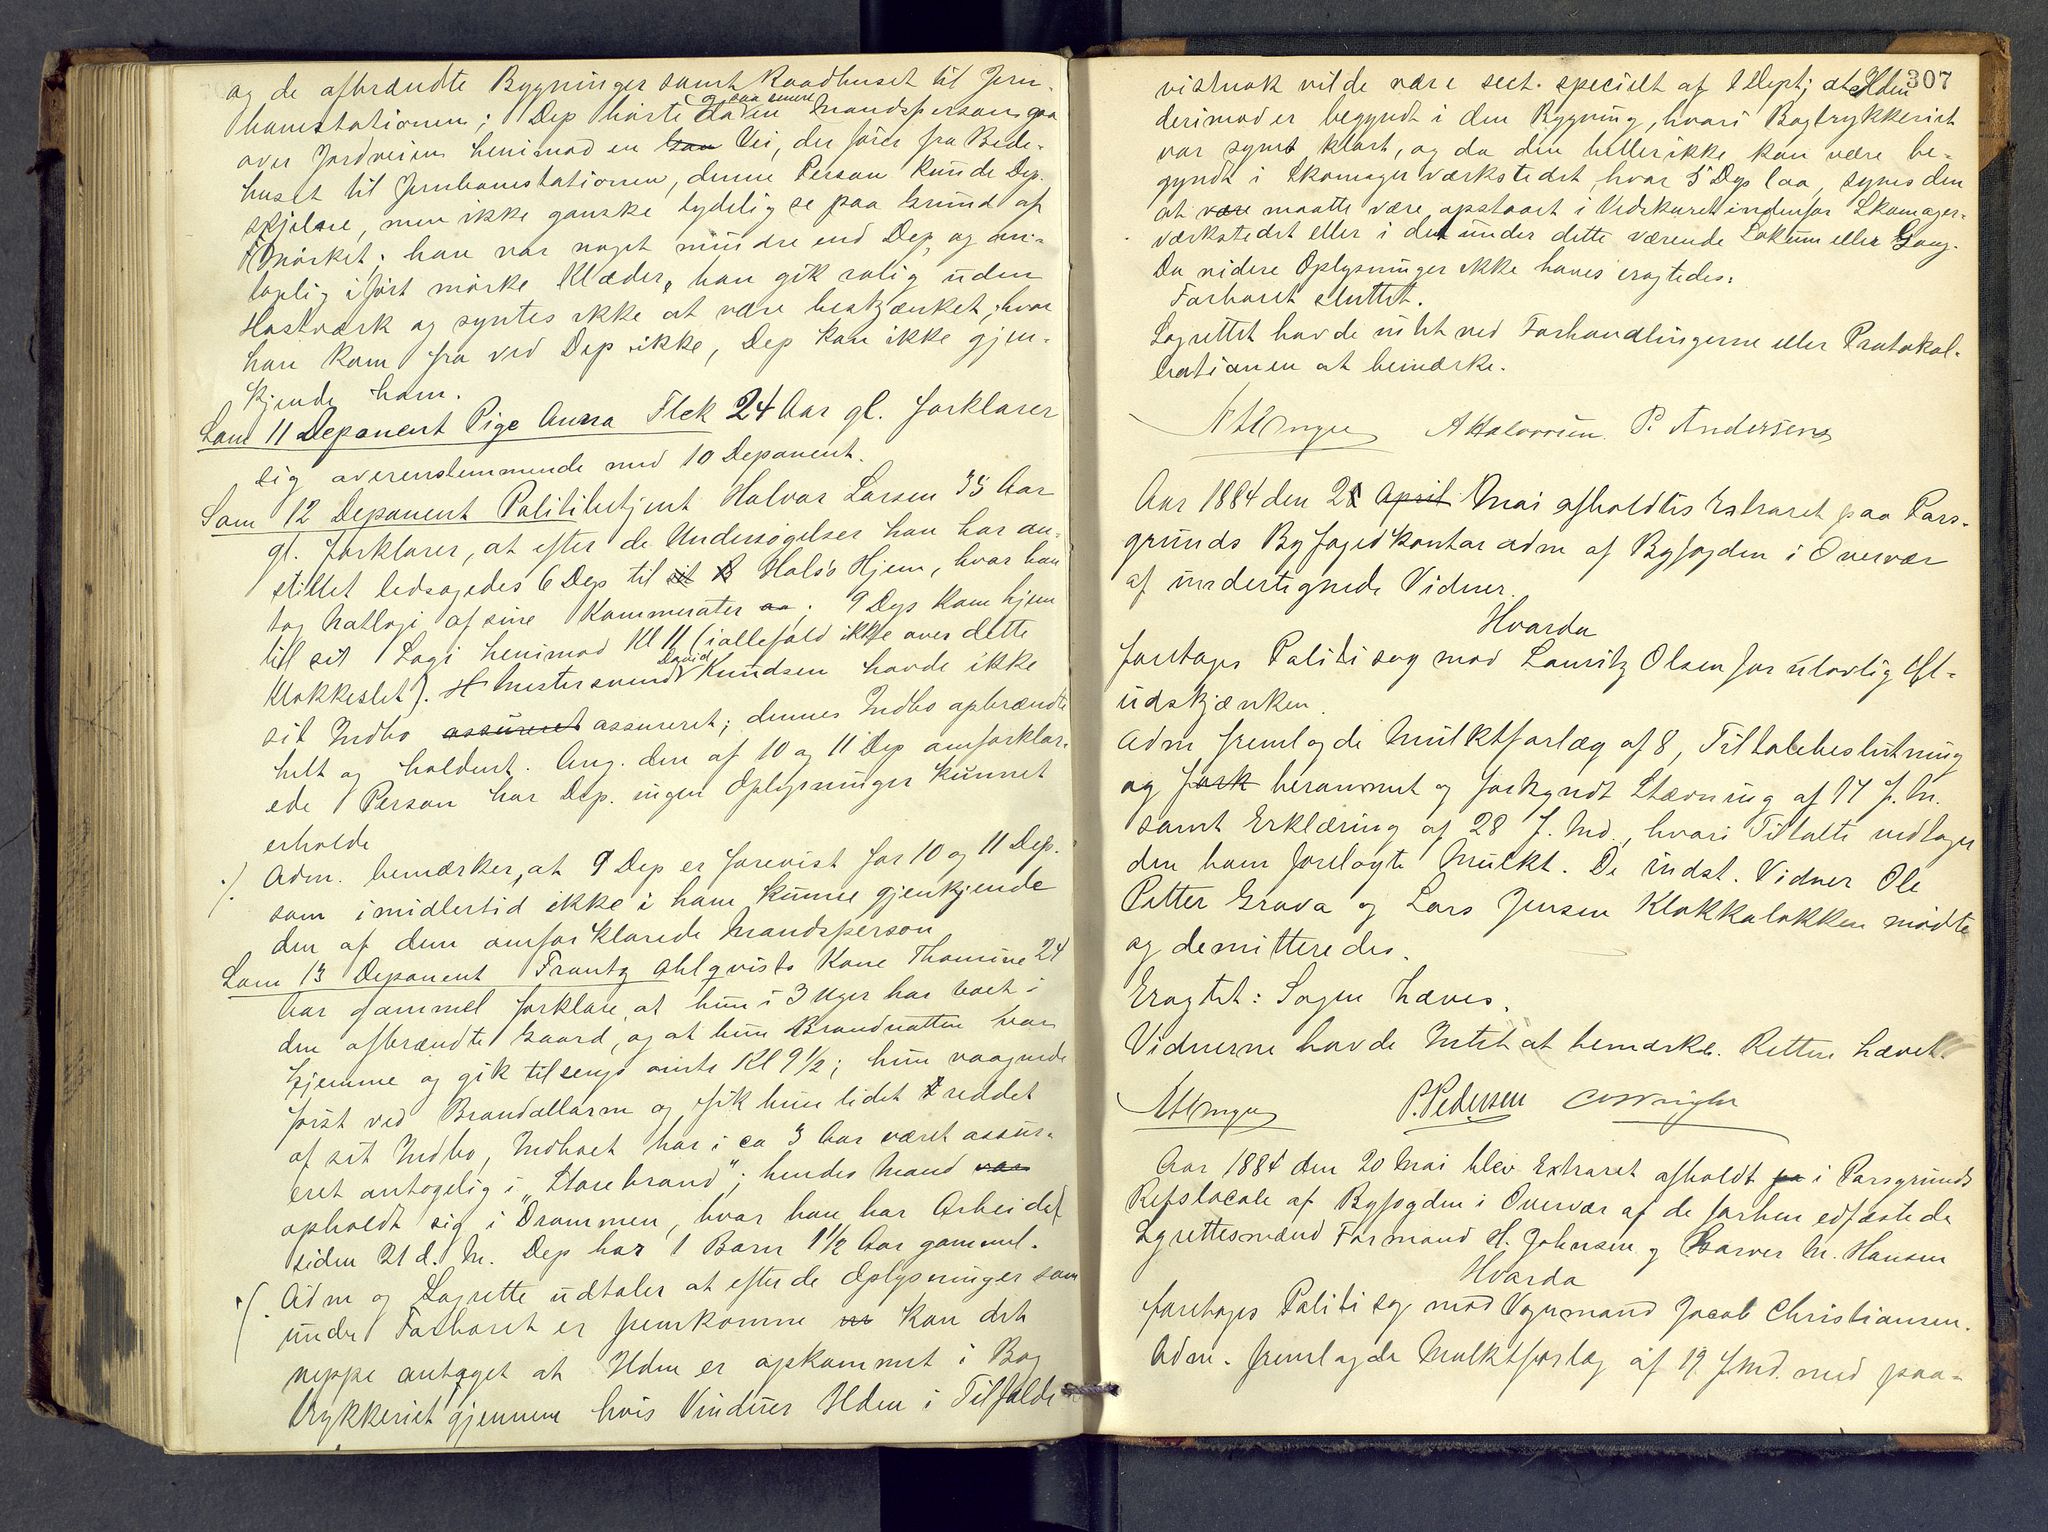 og de afbrændte Bygninger samt Raadhuset til Jern-
banestationen; Dep hørte da og saa senere en Mandsperson gaa
over Jordveien henimod en Vei, der fører fra Bede-
huset til Jernbanestationen, denne Person kunde Dep.
skjelne, men ikke ganske tydelig se paa Grund af
Mørket; han var noget mindre end Dep, og an-
tagelig iført mørke Klæder, han gik rolig uden
Hastværk og syntes ikke at være beskjænket, hvor
han kom fra ved Dep ikke, Dep kan ikke gjen-
kjende ham.
Som 11 Deponent Pige Anna Flek 24 Aar gl. forklarer
sig overenstemmende med 10 Deponent.
Som 12 Deponent Politibetjent Halvor Larsen 35 Aar
gl. forklarer, at efter de Undersøgelser han har an-
stillet ledsagedes 6 Dep til Hals's Hjem, hvor han
tog Natlogi af sine Kammerater; 9 Dep kom hjem
til sit Logi henimod Kl 11 (iallefald ikke over dette
Klokkeslet). Mestersvend David Knudsen havde ikke
sit Indbo assureret assureret; dennes Indbo opbrændte
helt og holdent. Ang. den af 10 og 11 Dep omforklar-
ede Person har Dep. ingen Oplysninger kunnet
erholde
./. Adm. bemærker, at 9 Dep er forevist for 10 og 11 Dep.
som imidlertid ikke i ham kunne gjenkjende
den af dem omforklarede Mandsperson
Som 13 Deponent Frantz Ahlqvists Kone Thomine 24
Aar gammel forklare, at hun i 3 Uger har boet i
den afbrændte Gaard, og at hun Brandnatten var
hjemme og gik tilsengs omtr Kl 9½; hun vaagnede
først ved Brandallarm og fik hun lidet reddet
af sit Indbo, Indboet har i ca 3 Aar været assur-
eret antagelig i „Storebrand"; hendes Mand var
opholdt sig i Drammen, hvor han har Arbeide
siden 21 d. M. Dep har 1 Barn 1½ Aar gammel.
./. Adm og Lagrette udtaler at efter de Oplysninger som
under Forhøret er fremkomne kan det
neppe antaget at Ilden er opkommet i Bog
trykkeriet gjennem hvis Vinduer Ilden i Tilfælde
307
vistnok vilde være seet. specielt af 1 Dept; at Ilden
derimod er begyndt i den Bygning, hvori Bogtrykkeriet
var synes klart, og da den heller ikke kan være be-
gyndt i Skomagerværkstedet, hvor 5 Dep laa, synes den
at være maatte være opstaaet i Vedskuret indenfor Skomager-
værkstedet eller i det under dette værende Lokum eller Gang.
Da videre Oplysninger ikke haves eragtedes:
Forhøret sluttet.
Lagrettet havde intet ved Forhandlingerne eller Protokol-
lationen at bemærke.
A Halvorsen. P. Andersen
Aar 1884 den 21 April Mai afholdtes Extraret paa Pors-
grunds Byfogedkontor adm af Byfogden i Overvær
af undertegnede Vidner.
Hvorda
foretoges Politisag mod Lauritz Olsen for ulovlig Øl-
udskjænken.
Adm fremlagde Mulktforlæg af 8, Tiltalebeslutning
og fork berammet og forkyndt Stævning af 17 f. M.
samt Erklæring af 28 f. Md., hvori Tiltalte vedtager
den ham forelagte Mulkt. De indst. Vidner Ole
Petter Grava og Lars Jensen Klokkaløkken mødte
og demitteredes.
Eragtet: Sagen hæves.
Vidnerne havde Intet at bemærke. Retten hævet.
P. Pedersen
Aar 1884 den 20 Mai blev Extraret afholdt paa i Porsgrunds
Retslocale af Byfogden i Overvær af de forhen edfæstede
Lgrettesmænd Formand H. Johnsen og Garver M. Hansen
Hvorda
foretoges Politisag mod Vognmand Jacob Christiansen.
Adm. fremlagde Mulktforlæg af 19 f. Md. med paa-